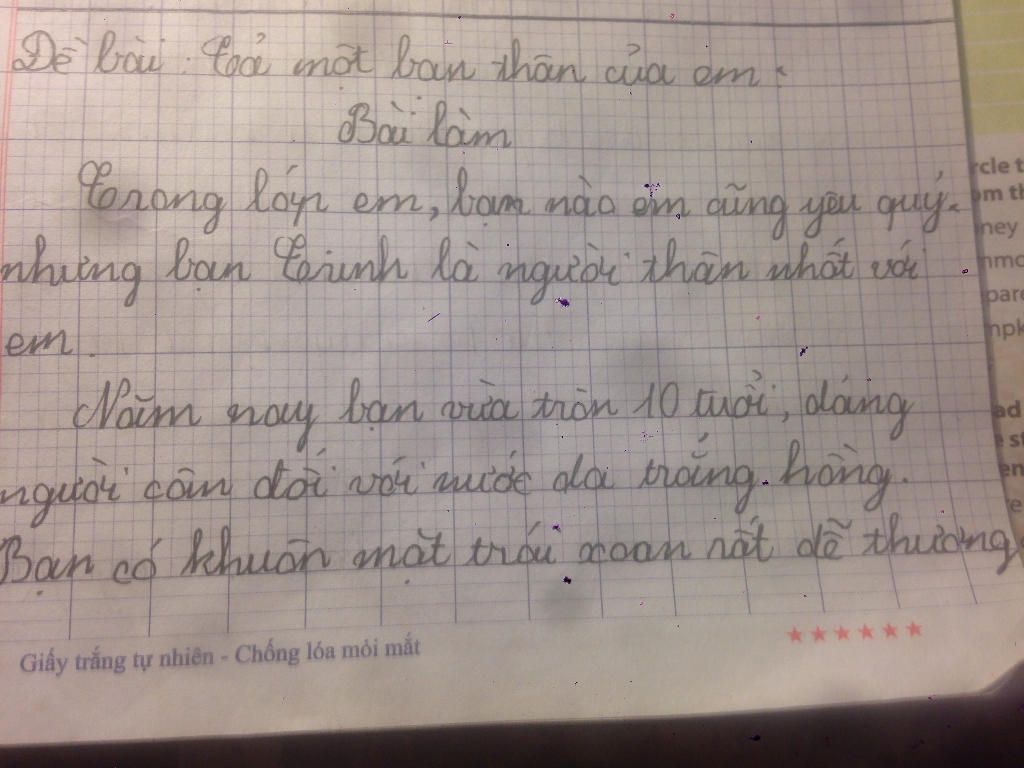 Đề bài: Toả một bạn thân của em.
Bài làm
Trong lớp em, bạn nào em cũng yêu quý.
nhưng bạn Trinh là người thân nhất với
em.
Năm nay bạn vừa tròn 10 tuổi, dáng
người cân đối với nước da trắng hồng.
Bạn có khuôn mặt trái xoan rất dễ thương
Giấy trắng tự nhiên - Chống lóa mỏi mắt
rcle t
om th
ney
nmo
pare
npk
ad
e st
en
re